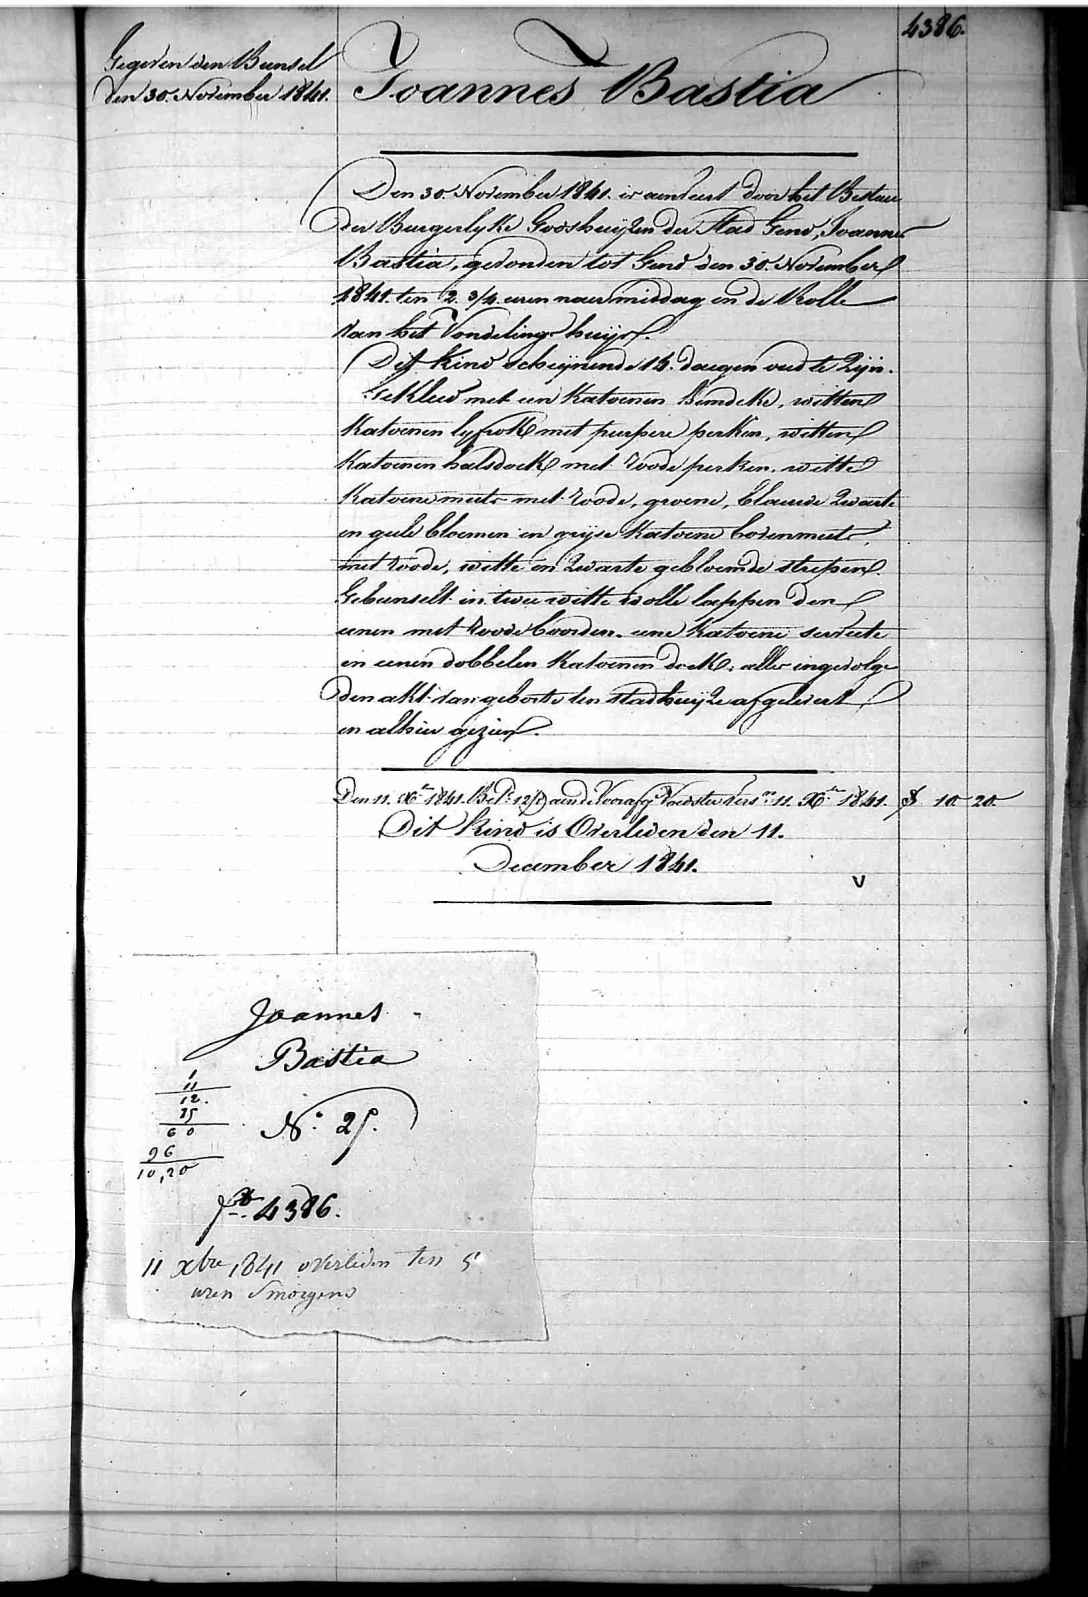 4386.
Gegeven den Bunsel
den 30. November 1841.
Joannes Bastia
Den 30. November 1841. is aenveert door het Bestuer
der Burgerlyke Godshuijzen der Stad Gend, Joannes
Bastia, gevonden tot Gend den 30. November
1841. ten 2. 3/4 uren naer middag in de Rolle
van het Vondeling-huijs.
Dit kind schijnende 14. daegen oud te zijn.
Gekleed met een katoenen hemdeke, witten
katoenen lyfrok met purpere perken, witten
katoenen halsdoek met roode perken, witte
katoene muts met roode, groene, blauwe zwarte
en gele bloemen en grijse katoene bovenmuts,
met roode, witte en zwarte gebloemde strepen.
Gebunselt in twee witte wolle lappen den
eenen met roode boorden, eene katoene serviette
en eenen dobbelen katoenen doek; alles ingevolge
den akt van geboorte ten stadhuijze afgelevert
en alhier gezien.
Den 11. Xbre 1841. Bet. 12 aen de Voorafg. Voedster 11. Xbre 1841. 10 20
Dit kind is Overleden den 11.
December 1841.
v
Joannes
Bastia
1
11
12.
25
60
96
10,20
No. 25.
fo. 4386.
11 xbre 1841 overleden ten 5
uren smorgens